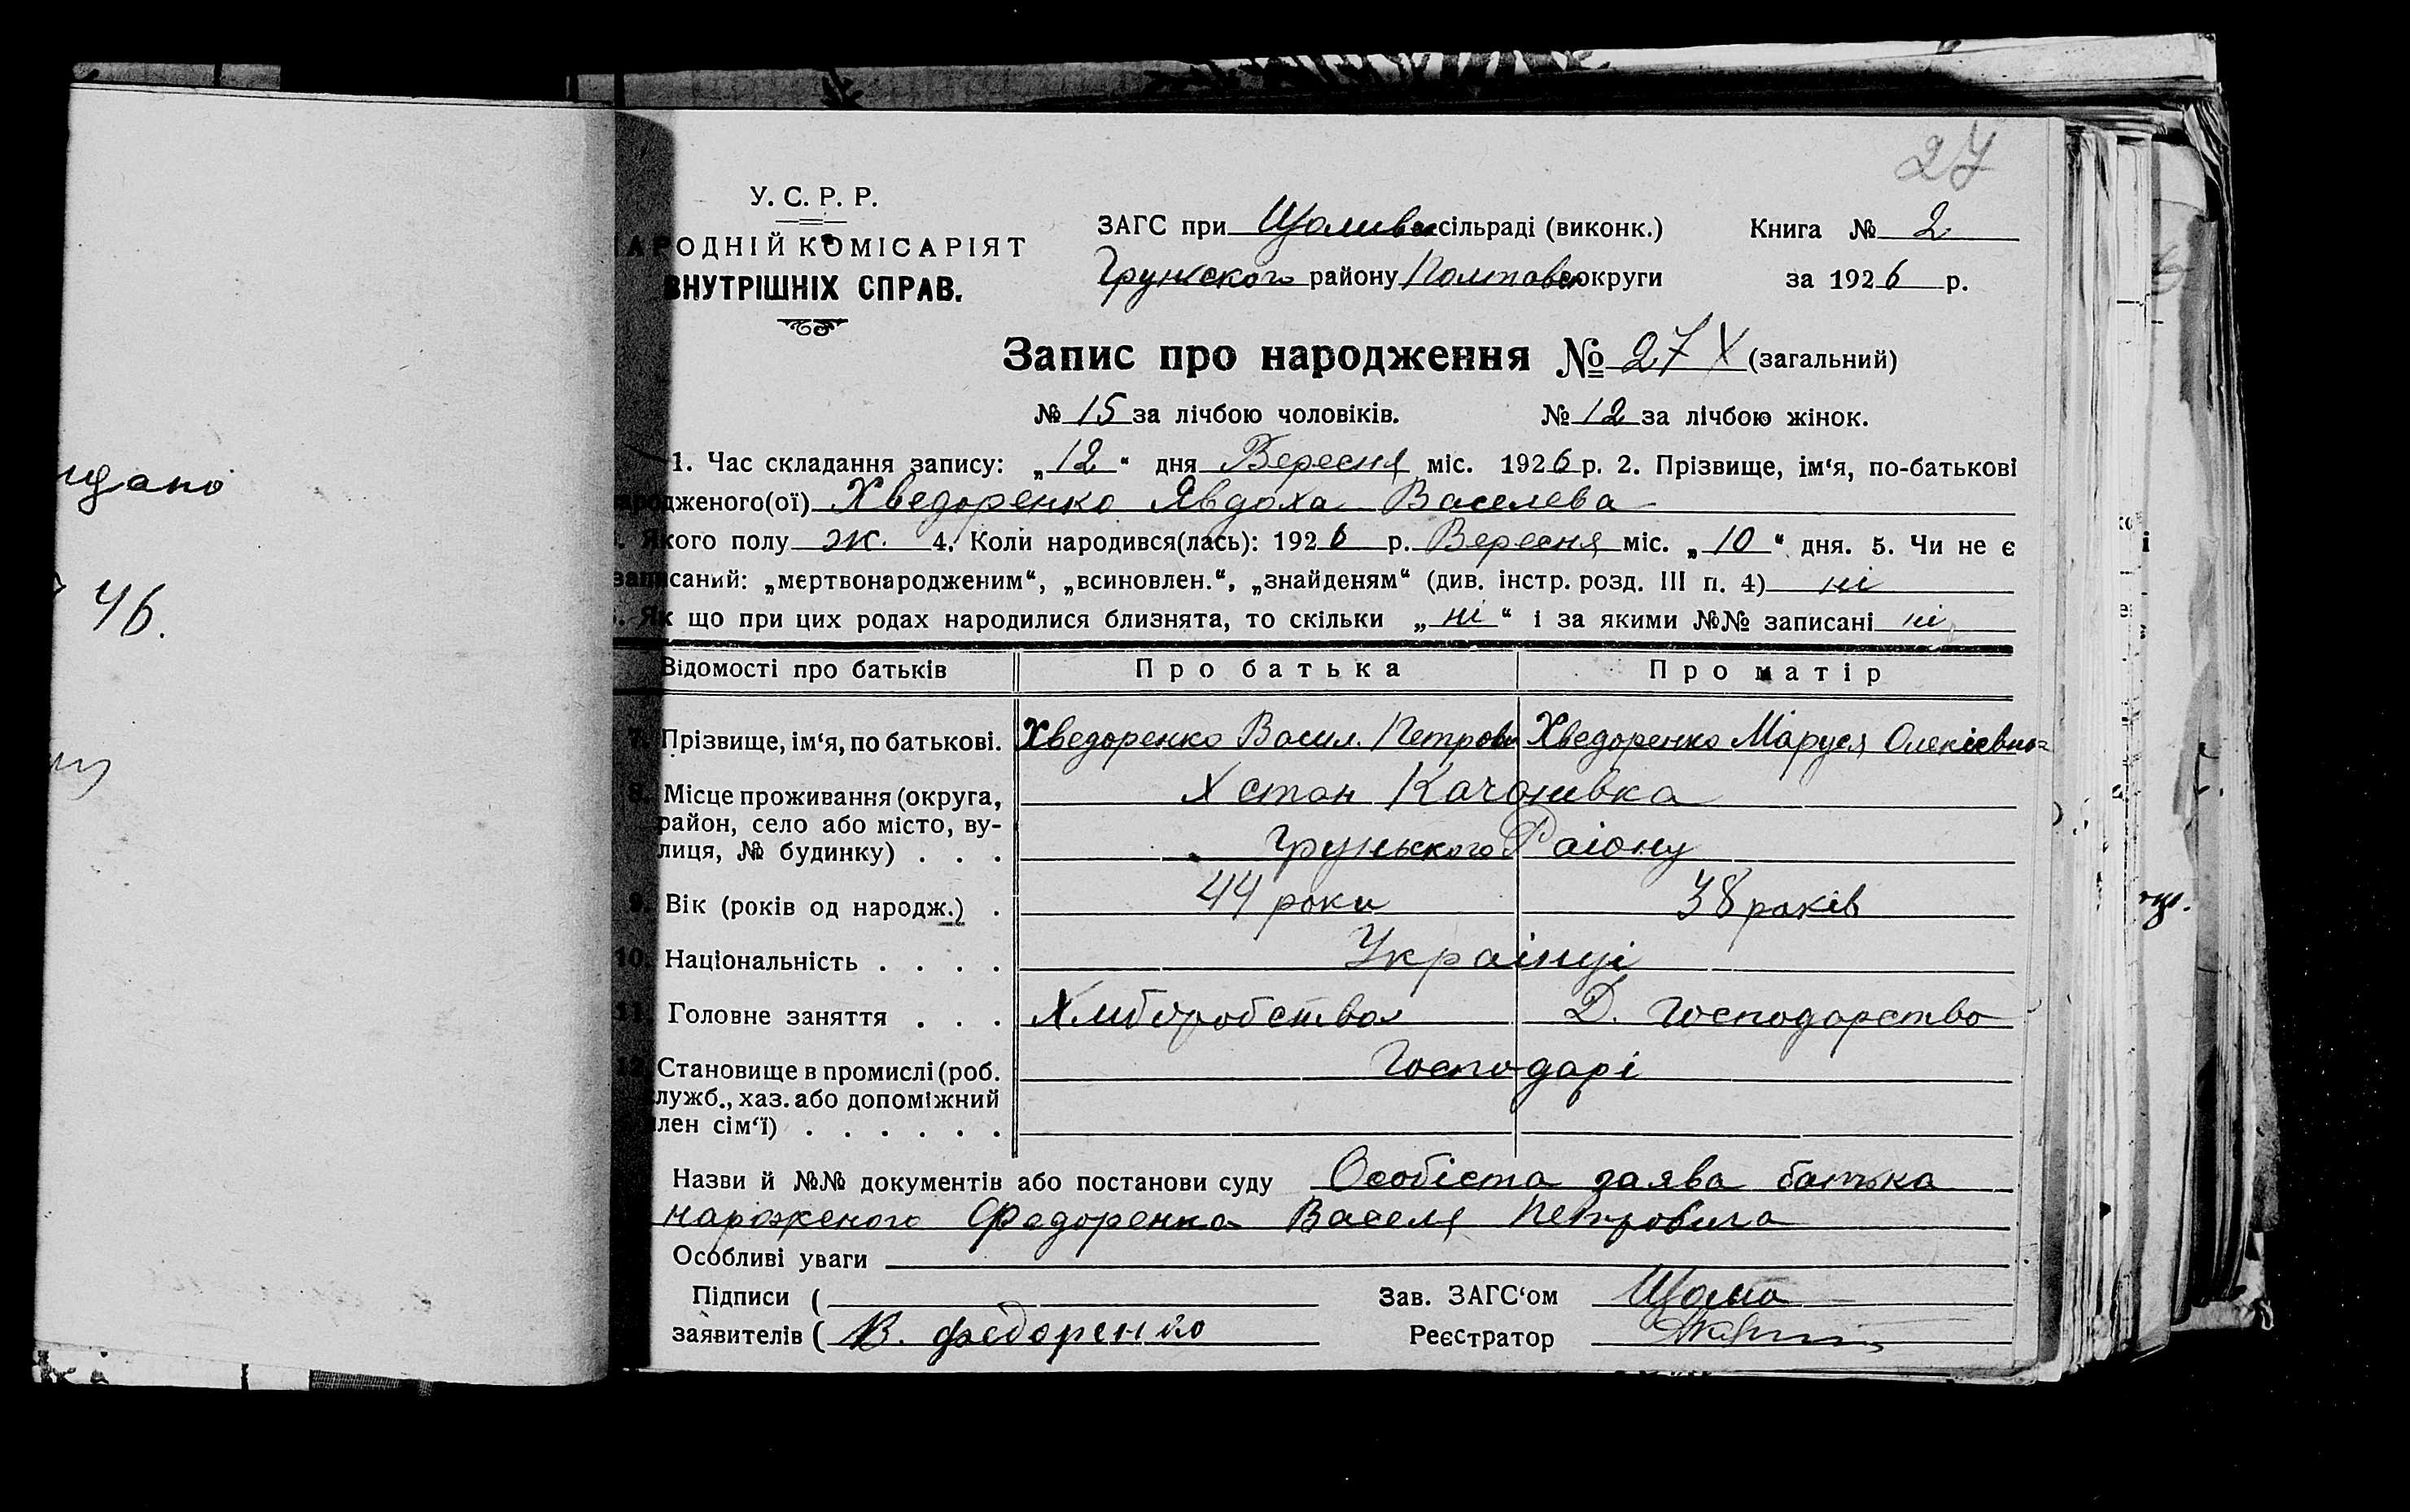 27
У. С. Р. Р.
НАРОДНІЙ КОМІСАРІЯТ
ВНУТРІШНІХ СПРАВ.
ЗАГС при сільраді (виконк.)
Грунського району Полтавс округи
Книга № 2
за 1926 р.
Запис про народження № 27 (загальний)
№ 15 за лічбою чоловіків. № 12 за лічбою жінок.
1. Час складання запису: „12“ дня Вересня міс. 1926 р. 2. Прізвище, ім‘я, по-батькові
народженого(ої) Хведоренко Явдоха Васелева
Якого полу ж. 4. Коли народився(лась): 1926 р. Вересня міс. „10“ дня. 5. Чи не є
записаний: „мертвонародженим“, „всиновлен.“, „знайденям“ (див. інстр. розд. III п. 4) ні
Як що при цих родах народилися близнята, то скільки „ні“ і за якими №№ записані ні
Відомості про батьків Про батька Про матір
7. Прізвище, ім‘я, по батькові. Хведоренко Васил. Петров Хведоренко Маруся Олексіевна
8. Місце проживання (округа,
район, село або місто, ву-
лиця, № будинку) . . .
Качанивка
Груньского Раіону
9. Вік (років од народж.) . 44 роки 38 раків
10. Національність . . . . Украінці
11. Головне заняття . . . Хлиборобство Д. господарство
12. Становище в промислі (роб.
служб., хаз. або допоміжний
член сім‘ї) . . . . . .
Господарі
Назви й №№ документів або постанови суду Особіста заява батька
нароженого Федоренка Васеля Петровича
Особливі уваги
Підписи (
заявителів ( В. Федоренко
Зав. ЗАГС‘ом
Реєстратор
46.